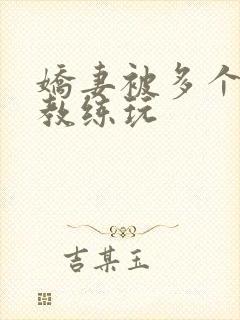 娇妻被多个
教练玩
吉某玉